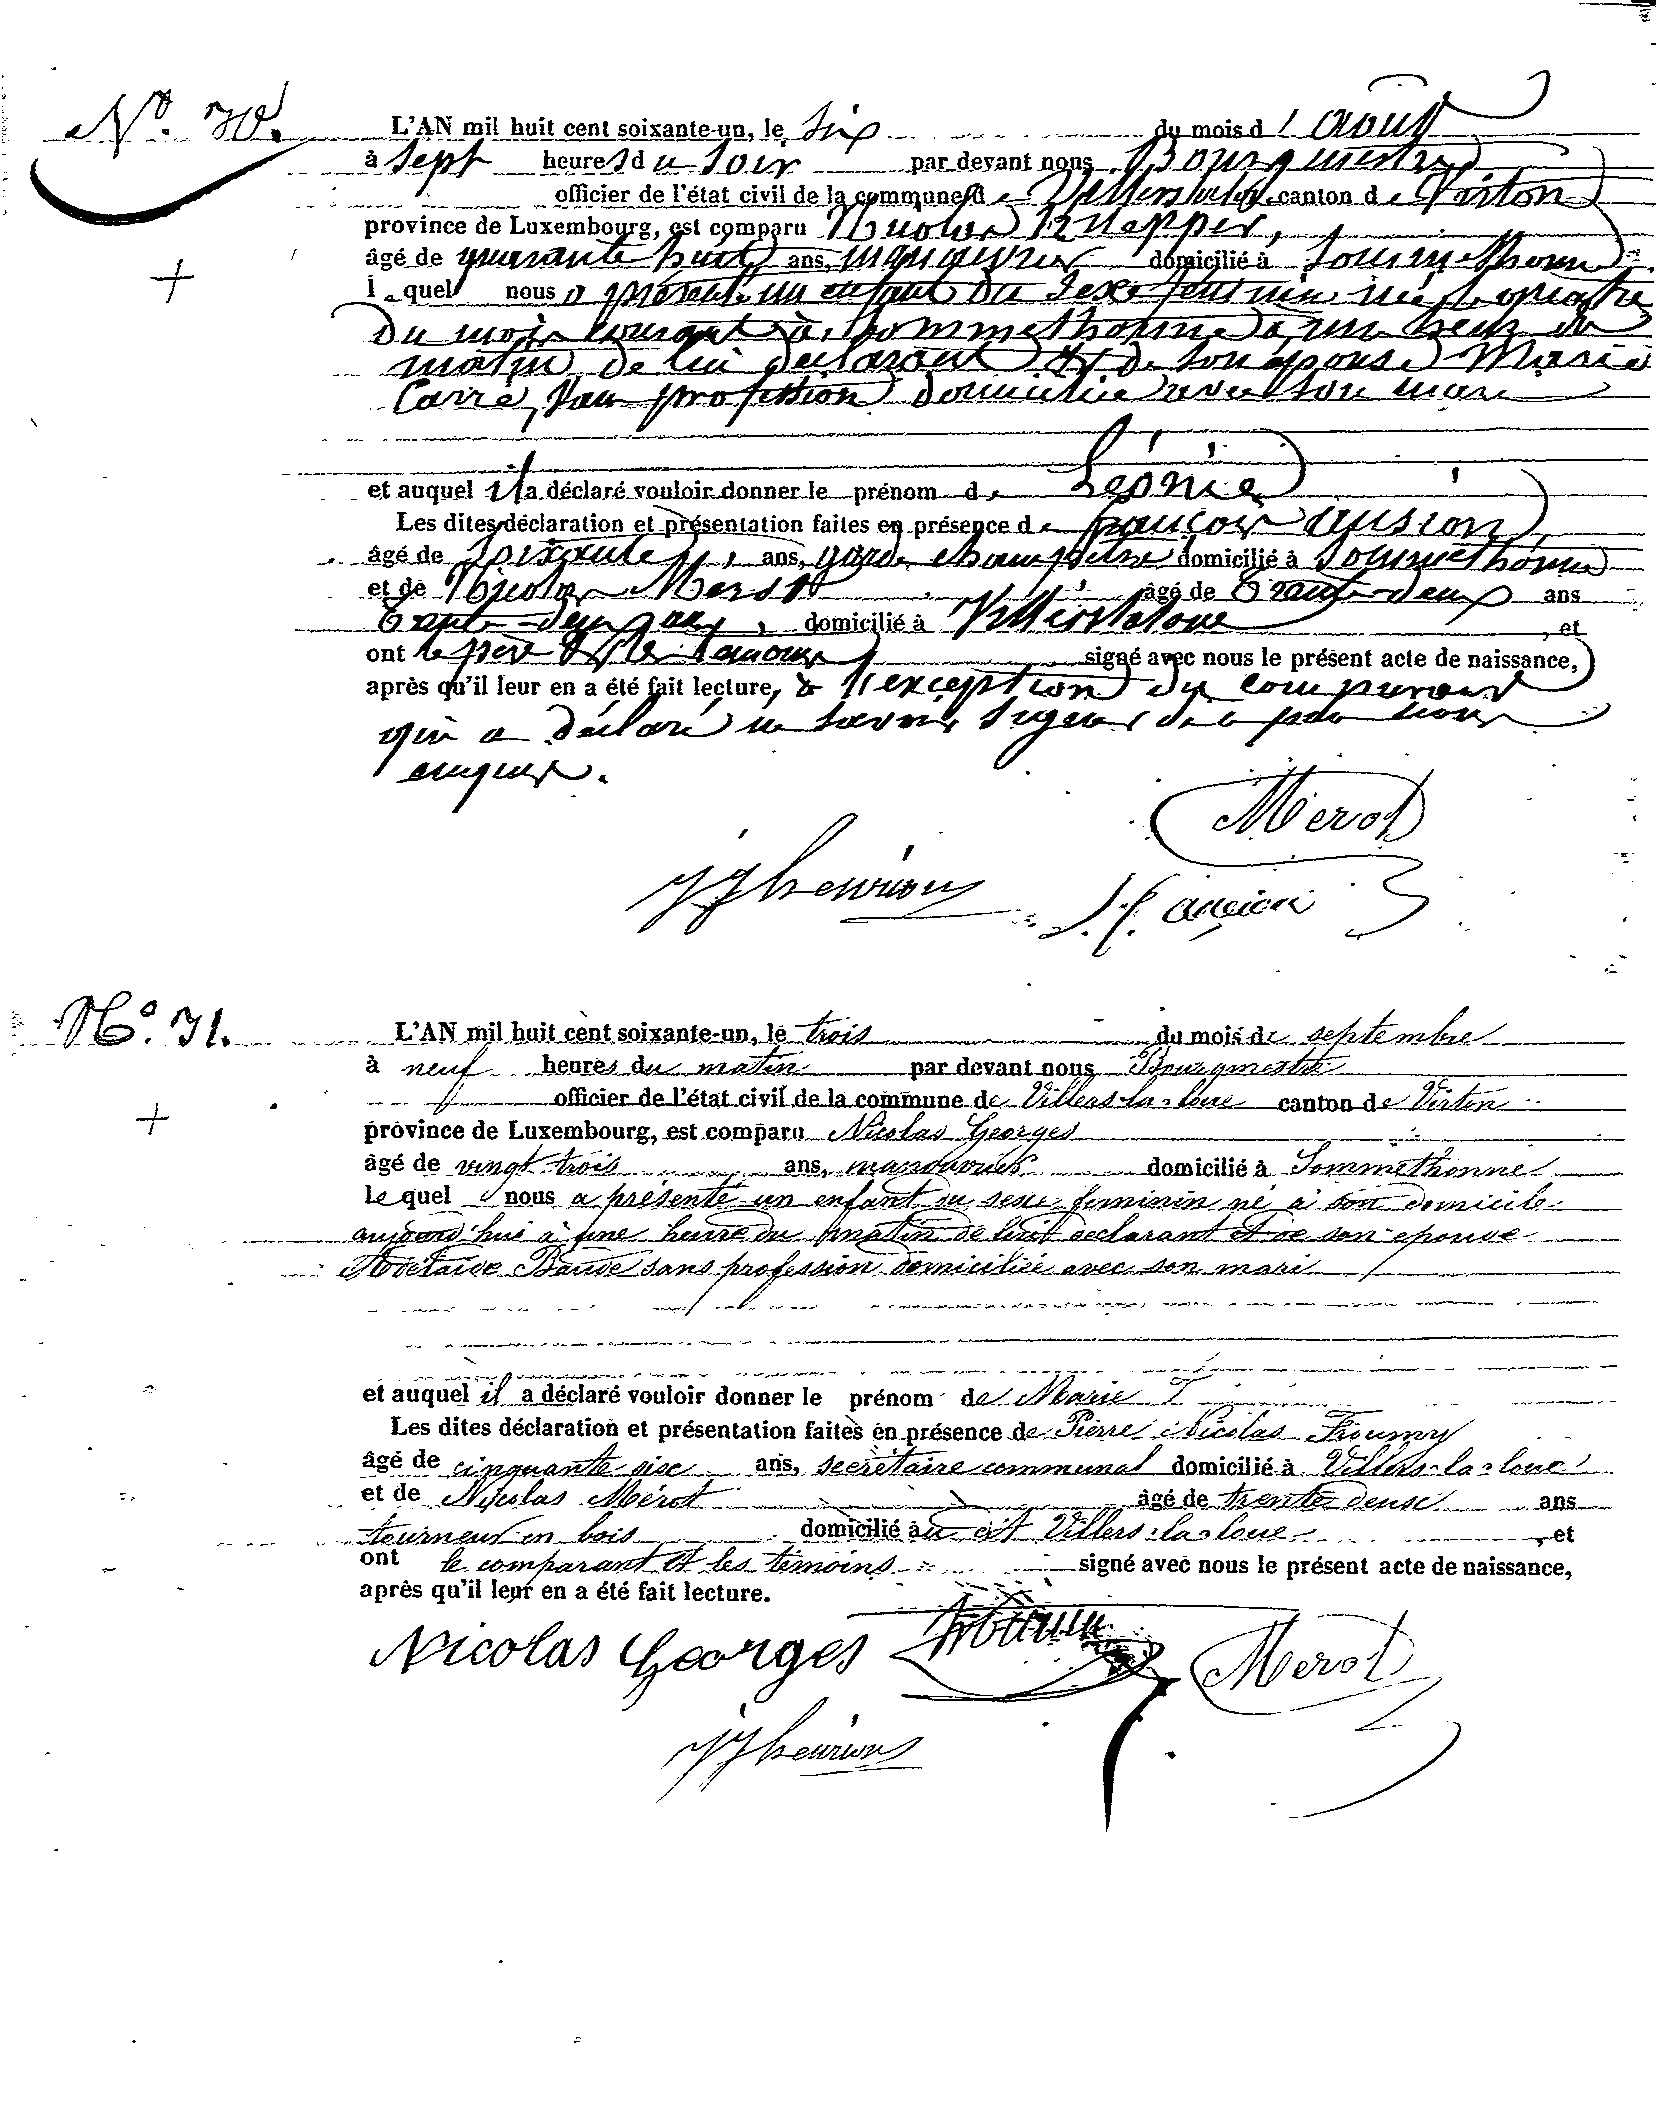 N° 30. L'AN mil huit cent soixante-un, le six du mois d' août
à sept heures du soir par devant nous Bourgmestre
officier de l'état civil de la commune de Villers la loue canton de Virton
province de Luxembourg, est comparu Nicolas Knepper,
âgé de quarante huit ans, manouvrier domicilié à Sommethonne
lequel nous a présenté un enfant du sexe féminin né le quatre
du mois courant à Sommethonne à une heure du
matin de lui déclarant et de son épouse Marie
Carré, sans profession domiciliée avec son mari
et auquel il a déclaré vouloir donner le prénom de Léonie
Les dites déclaration et présentation faites en présence de françois ansion,
âgé de soixante ans, garde champêtre domicilié à Sommethonne
et de Nicolas Merot âgé de trente-deux ans
trente-deux ans, domicilié à Villers la loue , et
ont le père et les témoins signé avec nous le présent acte de naissance,
après qu'il leur en a été fait lecture, à l'exception du comparant
qui a déclaré ne savoir signer de ce par nous
enquis.
Merot
JJ henrion J. f. ancion
N° 31. L'AN mil huit cent soixante-un, le trois du mois de septembre
à neuf heures du matin par devant nous Bourgmestre
officier de l'état civil de la commune de Villers-la-loue canton de Virton
province de Luxembourg, est comparu Nicolas Georges
âgé de vingt trois ans, manouvrier domicilié à Sommethonne
le quel nous a présenté un enfant du sexe feminin né à son domicile
aujourd'hui à une heure du matin de lui declarant et de son epouse
Adelaide Baude sans profession domiciliée avec son mari
et auquel il a déclaré vouloir donner le prénom de Marie
Les dites déclaration et présentation faites en présence de Pierre Nicolas Froumy
âgé de cinquante six ans, secrétaire communal domicilié à Villers-la-loue
et de Nicolas Mérot âgé de trente deux ans
tourneur en bois domicilié au dit Villers-la-loue , et
ont le comparant et les témoins signé avec nous le présent acte de naissance,
après qu'il leur en a été fait lecture.
Nicolas Georges Merot
JJ henrion